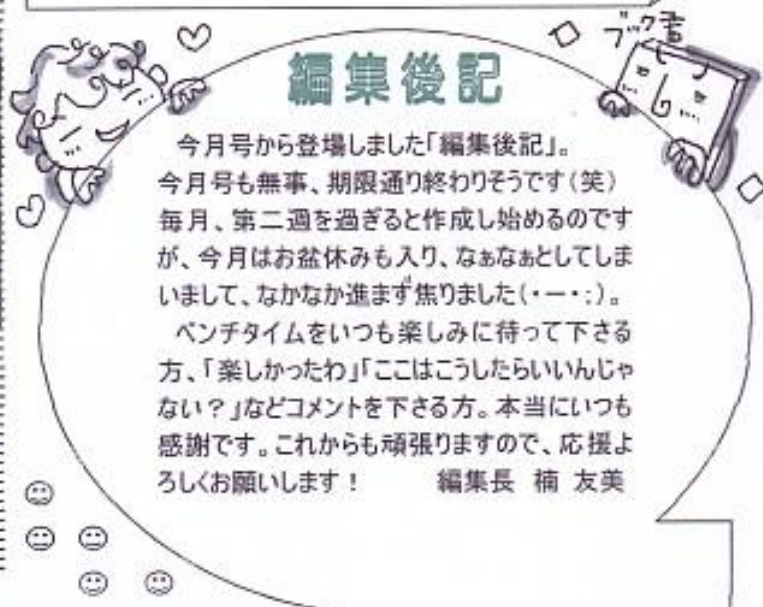 ブック書
編集後記
今月号から登場しました「編集後記」。
今月号も無事、期限通り終わりそうです(笑)
毎月、第二週を過ぎると作成し始めるのです
が、今月はお盆休みも入り、なぁなぁとしてしま
いまして、なかなか進まず焦りました(・ー・;)。
ベンチタイムをいつも楽しみに待って下さる
方、「楽しかったわ」「ここはこうしたらいいんじゃ
ない?」などコメントを下さる方。本当にいつも
感謝です。これからも頑張りますので、応援よ
ろしくお願いします! 編集長 楠 友美